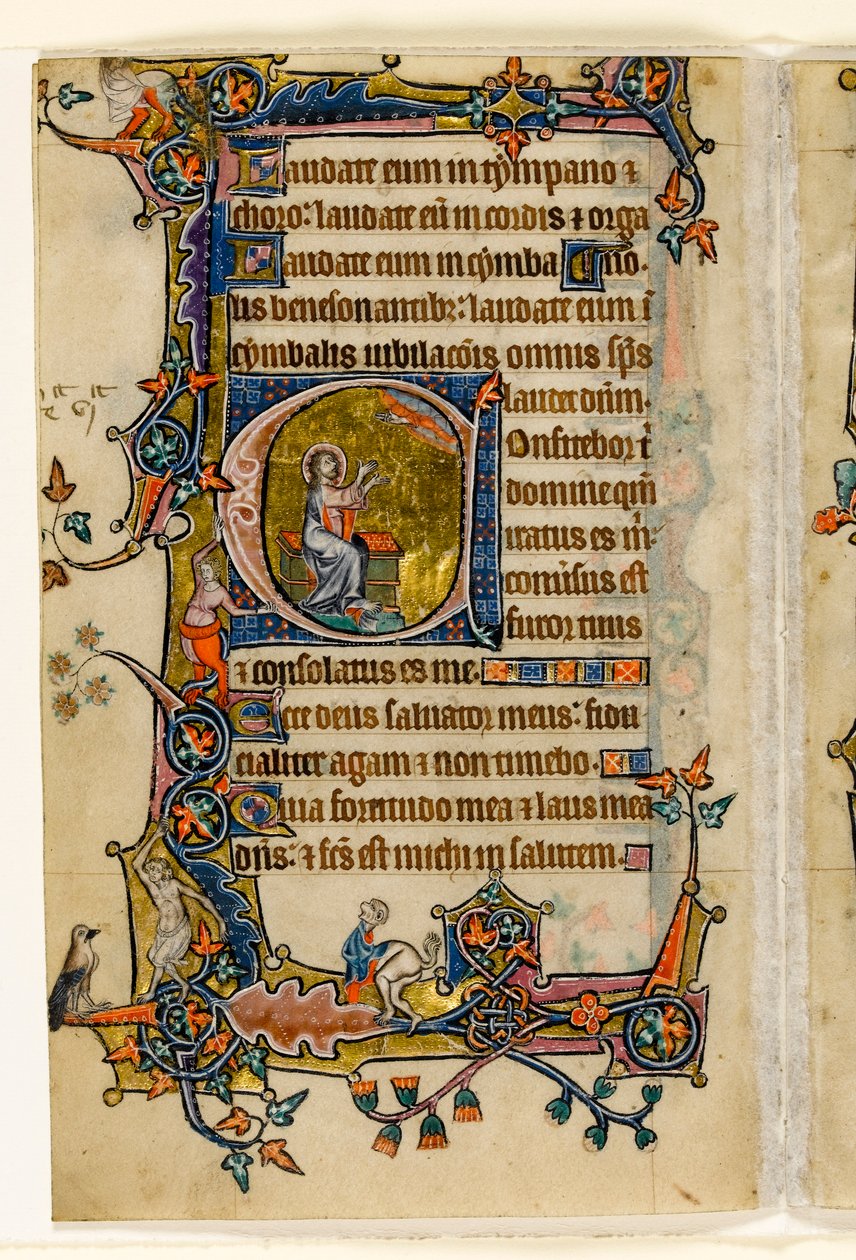 Laudate eum in tympano ⁊
choro: laudate eū in cordis ⁊ orga
Laudate eum in cymba no.
lis benesonantibꝫ: laudate eum ī
cymbalis iubilacōis omnis sp̄s
laudet dn̄m.
Confitebor t̄
domine qm̄
iratus es m̄:
conuersus est
furor tuus
⁊ consolatus es me.
Ecce deus saluator meus: fidu
cialiter agam ⁊ non timebo.
Quia fortitudo mea ⁊ laus mea
dn̄s: ⁊ fc̄s est michi in salutem.